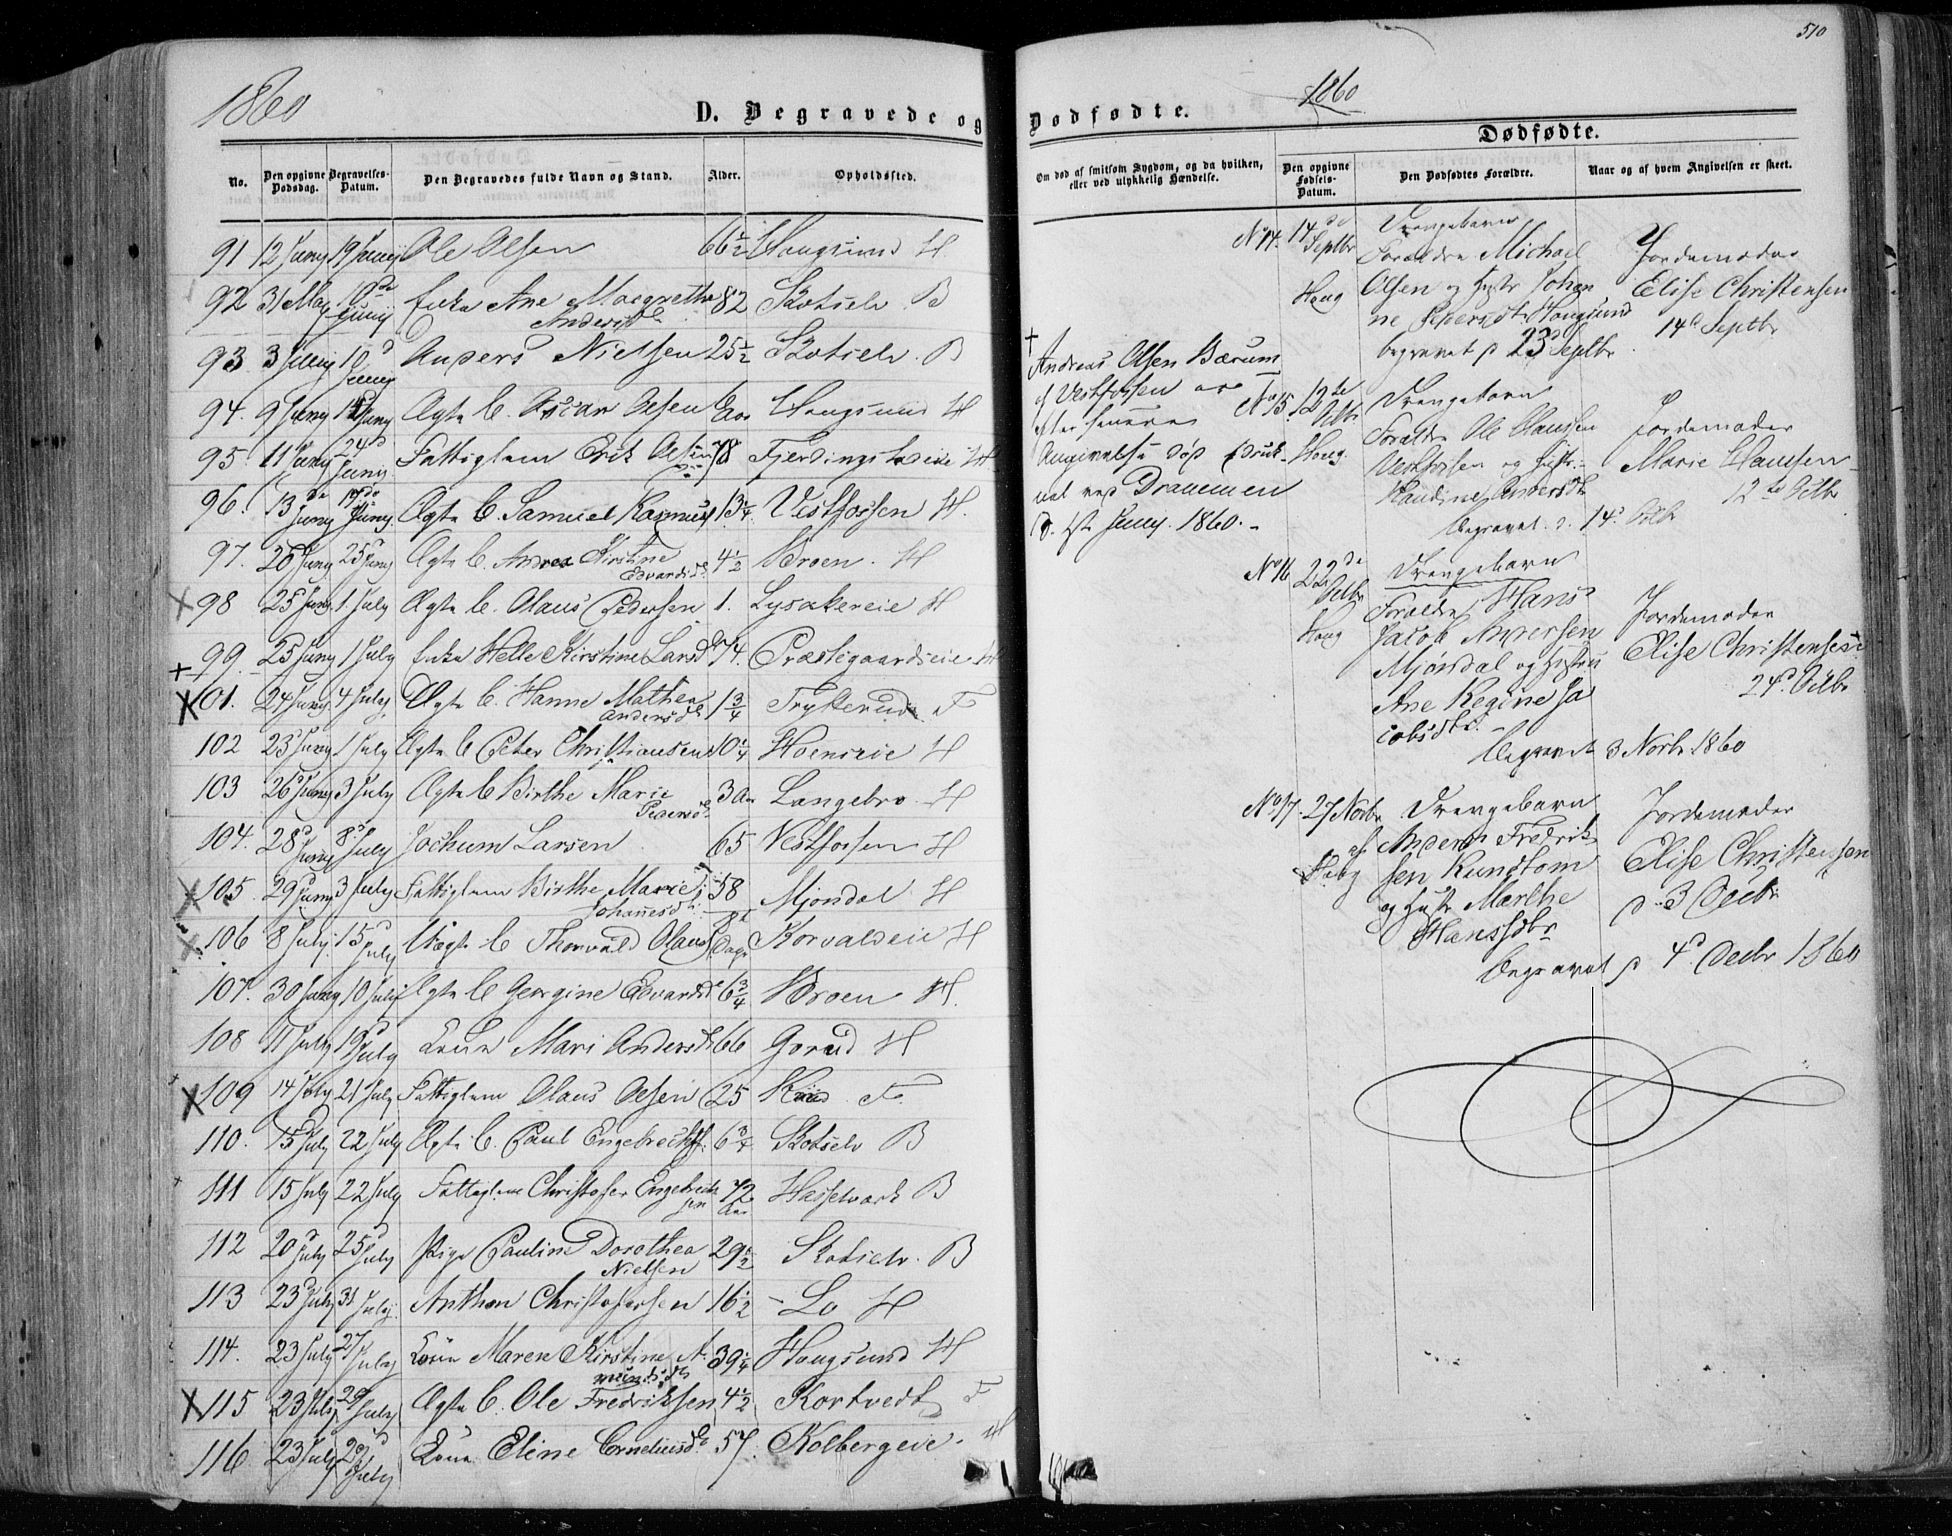 1860
D. Begravede og
No.
Den opgivne Dødsdag.
Begravelses-Datum.
Den Begravedes fulde Navn og Stand.
Alder.
Opholdssted.
91 12 Juny 19 Juny Ole Olsen 66½ Hougsund H
92 31 May 10de Juny Enke Ane Margrethe Andersdt 82 Skotselv B
93 3 Juny 10d Juny Anders Nielsen 25½ Skotselv. B
94. 9 Juny Juny Ægte B. Oscar Olsen 6 Hougsund H
95. 11 Juny 24d Juny Fattiglem Erik Olsen 78 H
96. 13de Juny 17de Juny Ægte B. Samuel Rasmus 1¾ Vestfossen H.
97. 20 Juny 25 Juny Ægte B. Andrea Kirstine Edvardsdt 4½ Broen. H
98 25 Juny 1 July Ægte B. Olaus Pedersen 1. Lysakereie H
99. 25 Juny 1 July Enke Helle Kirstine Larsdt 74. Præstegaardseie H
101. 24 Juny 4 July Ægte B. Hanne Mathea Andersdt 1¾ Trytterud F
102 23 Juny 1 July Ægte B Peter Christiansen 10¼ Hoenseie H
103 26 Juny 3 July Ægte B Birthe Marie Pedersdt 3 Langebro. H
104. 28d Juny 8d July Jochum Larsen 65 Vestfossen H
105. 29 Juny 3 July Fattiglem Birthe Marie Johannesdt. 58 Mjøndal H
106 8 July 15d July Uægte B Thorvald Olaus Dage Korvaldeie H
107. 30 Juny 10 July Ægte B Georgine Edvardsdt 6¾ Broen H.
108 11 July 19d July Kone Mari Andersdt 66 Gorud H
109 14 July 21 July Fattiglem Olaus Olsen 25 F.
110. 15 July 22 July Ægte B. Paul Engebrechts. 6¾ Skotselv B
111 15 July 22 July Fattiglem Christofer Engebrechtsen 72 Aar Hasselvark B
112 20d July 25d July Pige Pauline Dorothea Nielsen 29½ Skotselv. B
113 23 July 31 July Anthon Christofersen 16½ Lo H
114. 23 July 27 July Kone Maren Kirstine Amundsdt 39¼ Hougsund H
115 23 July 29 July Ægte B. Ole Fredriksen 4½ Kortvedt F
116 23 July 29d July Kone Eline Corneliusdt 57. Kolbergeie. H
510
1860
Dødfødte.
Dødfødte.
Om død af smitsom Sygdom, og da hvilken, eller ved ulykkelig Hændelse.
Den opgivne Fødsels-Datum.
Den Dødfødtes Forældre.
Naar og af hvem Angivelsen er skeet.
No 14. 14de Septbr
Houg
Drengebarn
Forældre Michael
Olsen og Hustr Johan
ne Pedersdt. Hougsund
begravet d 23d Septbr
Jordemoder
Elise Christensen
14d Septbr
+
Andreas Olsen Bærum
af Vestfossen
efter senere
Angivelse død druk-
net ved Drammen
d. Juny. 1860. -
No 15. 12te Octbr
Houg.
Drengebarn
Forældre Ole Claussen
Vestfossen og Hustr.
Andersdt
Begravet. d. 14d Octbr
Jordemoder
Marie Hansen
12te Octbr
No 16 22de Octbr
Houg
Drengebarn
Forældre Hans
Jacob Andersen
Mjøndal og Hustru
Ane Regine Ja
cobsdtr. -
Begravet 3 Novbr 1860
Jordemoder
Elise Christensen
24d Octbr
No 17. 27 Novbr
Houg
Drengebarn
af Anders Fredrik
sen Kundtom
og Hustr Marthe
Hansdtr
Begravet d 4d Decbr 1860
Jordemoder
Elise Christensen
d. 3 Decbr